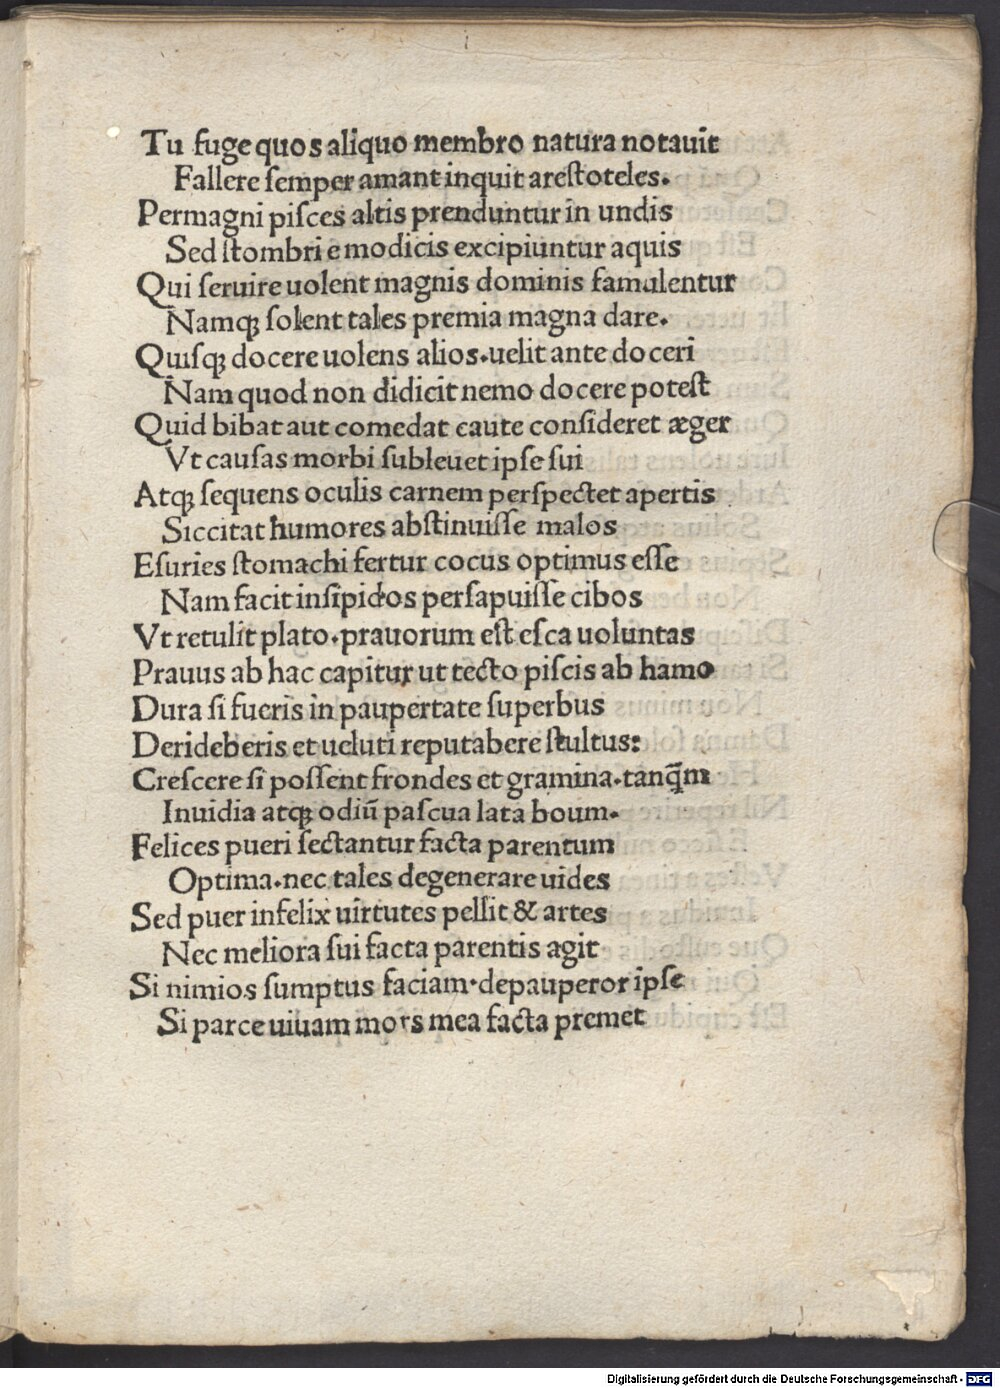 Tu fuge quos aliquo membro natura notauit
Fallere ſemper amant inquit areſtoteles.
Permagni piſces altis prenduntur in undis
Sed ſtombri e modicis excipiuntur aquis
Qui ſeruire uolent magnis dominis famulentur
Namqꝫ ſolent tales premia magna dare.
Quiſqꝫ docere uolens alios.uelit ante doceri
Nam quod non didicit nemo docere poteſt
Quid bibat aut comedat caute conſideret æger
Vt cauſas morbi ſubleuet ipſe ſui
Atqꝫ ſequens oculis carnem perſpectet apertis
Siccitat humores abſtinuiſſe malos
Eſuries ſtomachi fertur cocus optimus eſſe
Nam facit inſipidos perſapuiſſe cibos
Vt retulit plato.prauorum eſt eſca uoluntas
Prauus ab hac capitur ut tecto piſcis ab hamo
Dura ſi fueris in paupertate ſuperbus
Derideberis et ueluti reputabere ſtultus:
Creſcere ſi poſſent frondes et gramina.tanq̄m
Inuidia atqꝫ odiū paſcua lata boum.
Felices pueri ſectantur facta parentum
Optima.nec tales degenerare uides
Sed puer infelix uirtutes pellit & artes
Nec meliora ſui facta parentis agit
Si nimios ſumptus faciam.depauperor ipſe
Si parce uiuam mors mea facta premet
Digitalisierung gefördert durch die Deutsche Forschungsgemeinschaft - DFG